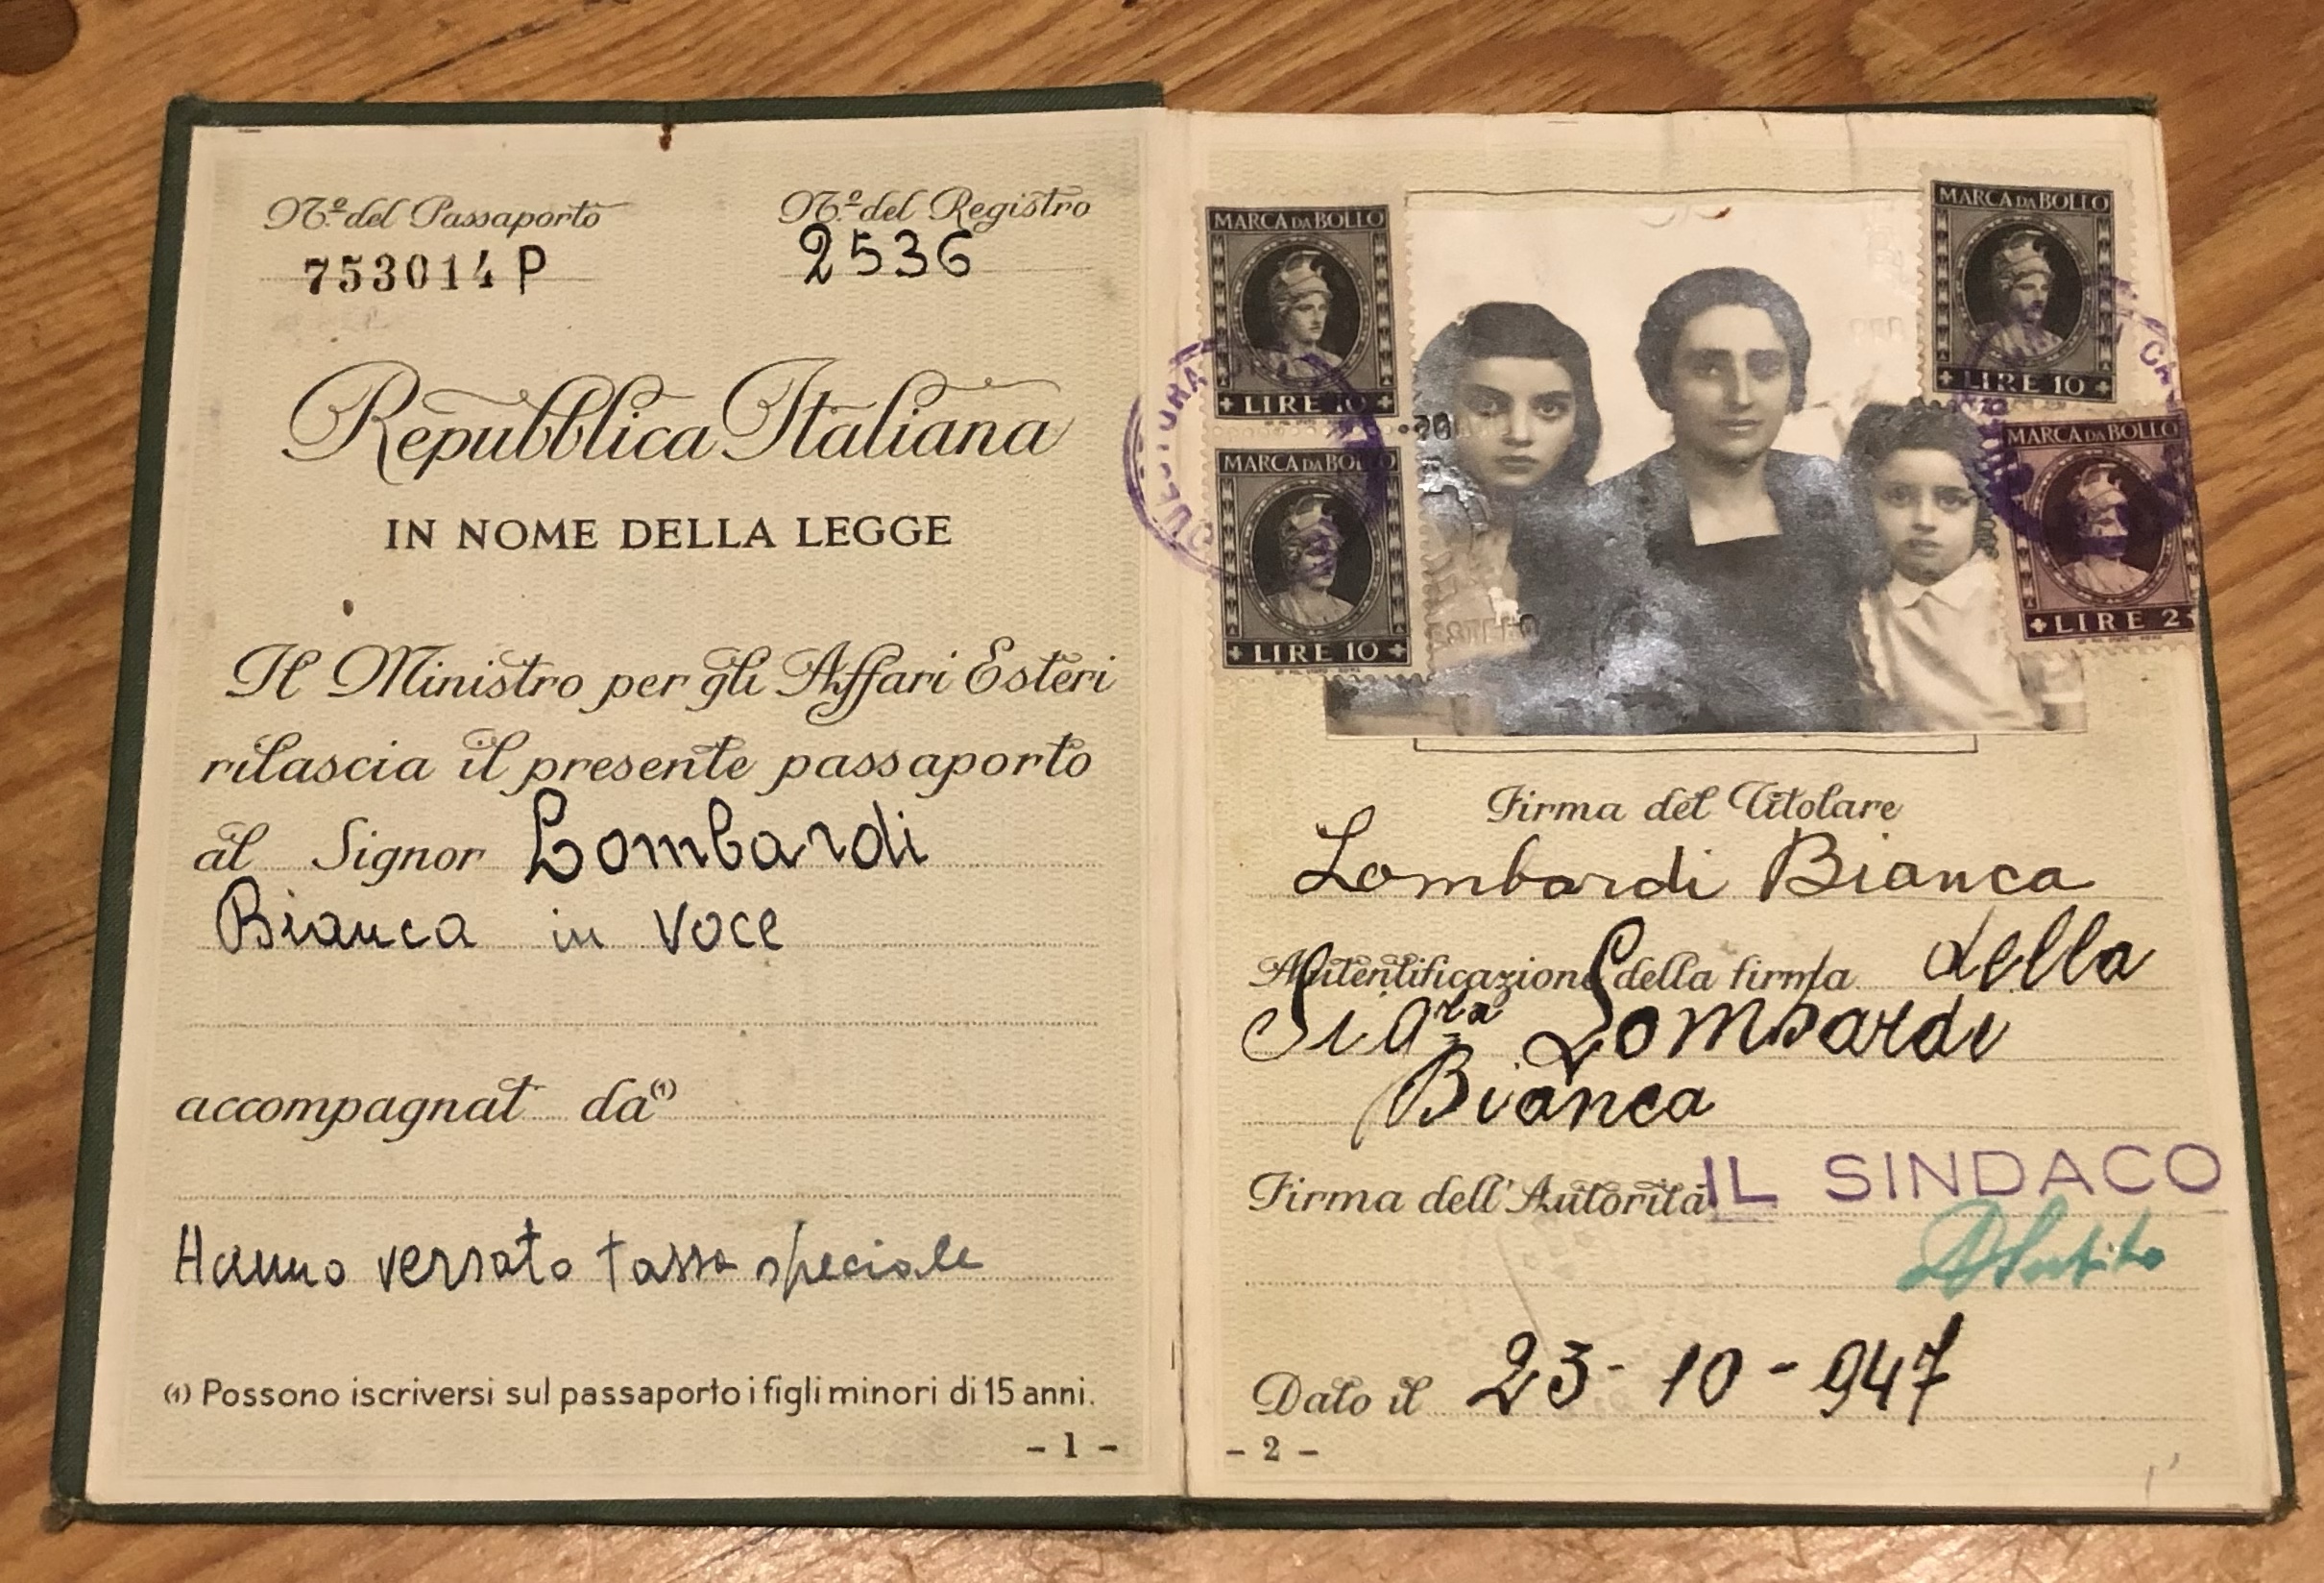 Nº del Passaporto
753014 P
Nº del Registro
2536
Repubblica Italiana
IN NOME DELLA LEGGE
Il Ministro per gli Affari Esteri
rilascia il presente passaporto
al Signor Lombardi
Bianca in Voce
accompagnat da (1)
Hanno versato tassa speciale
(1) Possono iscriversi sul passaporto i figli minori di 15 anni.
- 1 -
MARCA DA BOLLO
LIRE 10
MARCA DA BOLLO
LIRE 10
MARCA DA BOLLO
LIRE 10
MARCA DA BOLLO
LIRE 2
QUESTURA
Firma del Titolare
Lombardi Bianca
Autentificazione della firma della
Sig.ra Lombardi
Bianca
Firma dell'Autorità IL SINDACO
Dato il 23-10-947
- 2 -